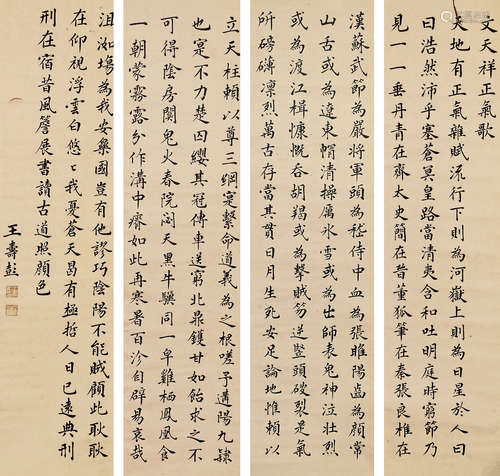 文天祥正氣歌
天地有正氣雜賦流行下則為河嶽上則為日星於人曰
曰浩然沛乎塞蒼冥皇路當清夷含和吐明庭時窮節乃
見一一垂丹青在齊太史簡在晉董狐筆在秦張良椎在
漢蘇武節為嚴將軍頭為嵇侍中血為張睢陽齒為顏常
山舌或為遼東帽清操厲氷雪或為出師表鬼神泣壯烈
或為渡江楫慷慨吞胡羯或為擊賊笏逆豎頭破裂是氣
所磅礴凜烈萬古存當其貫日月生死安足論地惟賴以
立天柱賴以尊三綱寔繫命道義為之根嗟予遘陽九隸
也寔不力楚囚纓其冠傳車送窮北鼎鑊甘如飴求之不
可得陰房闃鬼火春院閟天黑牛驥同一皁雞栖鳳凰食
一朝蒙霧露分作溝中瘠如此再寒暑百沴自辟易哀哉
沮洳場為我安樂國豈有他謬巧陰陽不能賊顧此耿耿
在仰視浮雲白悠悠我憂蒼天曷有極哲人日已遠典刑
刑在宿昔風簷展書讀古道照顏色
王壽彭